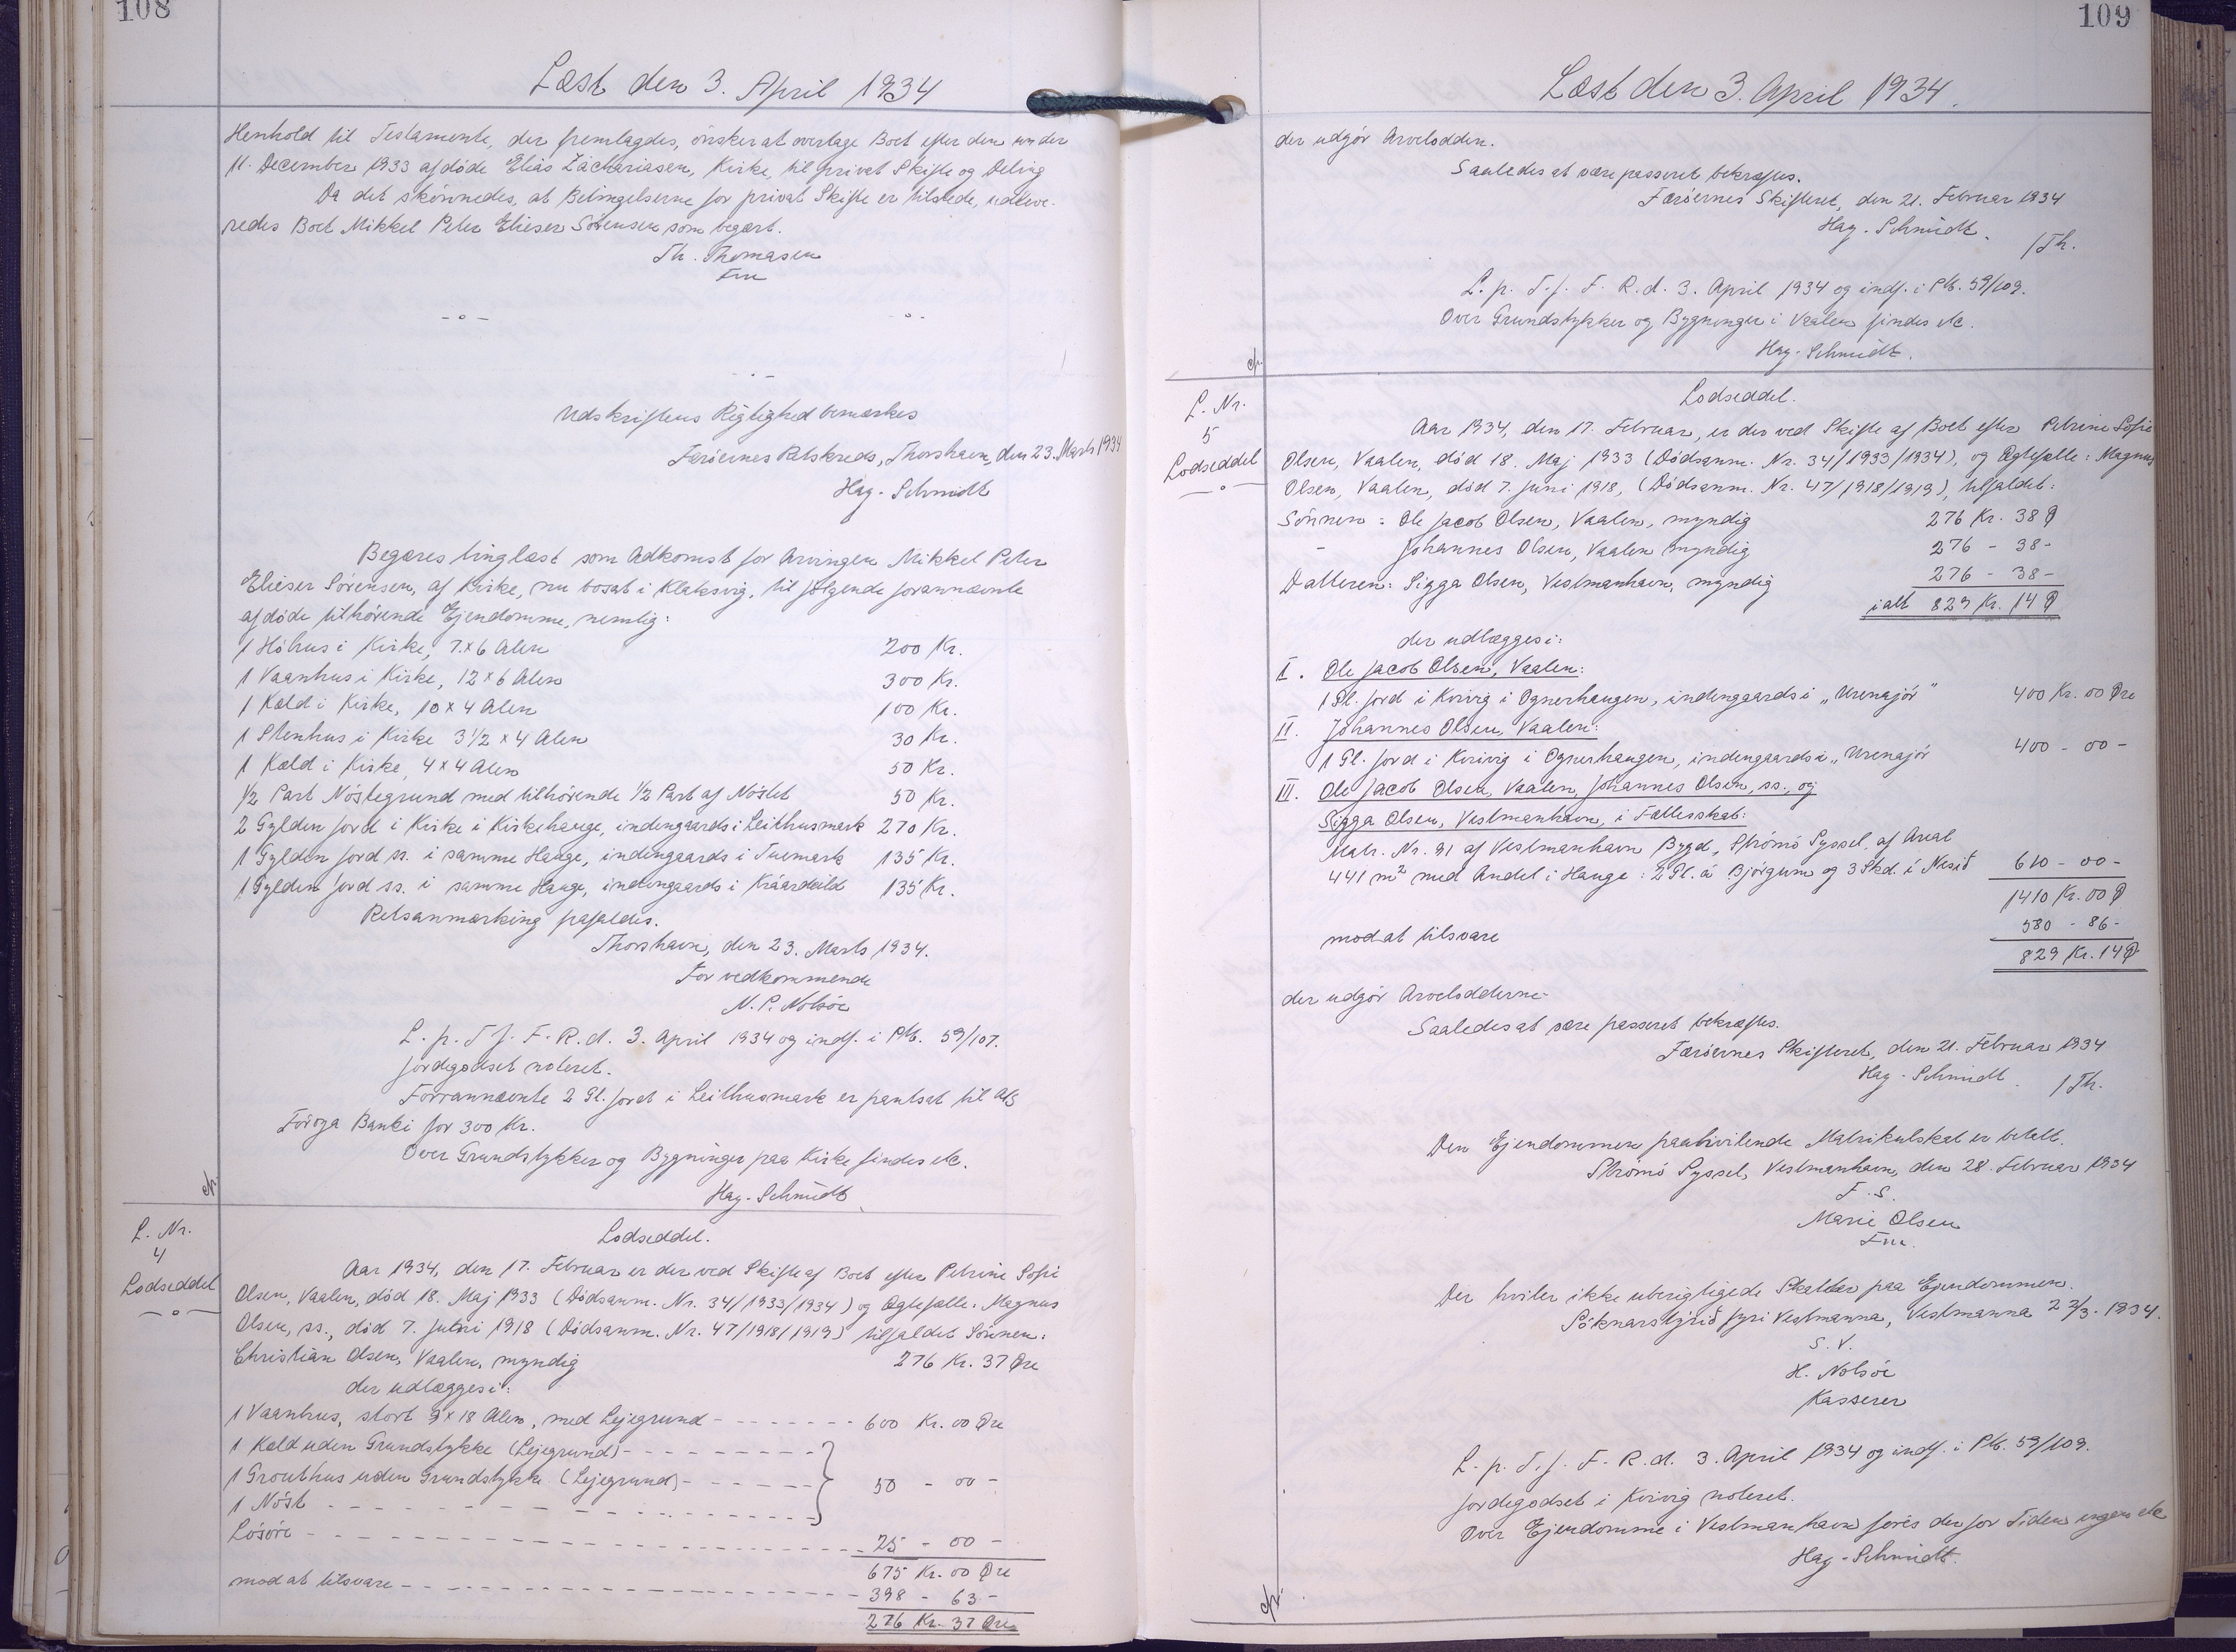 108
Læst den 3. April 1934
Henhold til Testamente, der fremlagdes, ønsker at overtage Boet efter den under
11. December 1933 afdøde Elias Zachariasen, Kirke, til privat Skifte og Deling
Da det skönnedes, at Betingelserne for privat Skifte er tilstede, udleve-
redes Boet Mikkel Peter Elieser Sörensen som begært.
Th. Thomasen
Fm
- o -
Udskriftens Rigtighed bemærkes
Færöernes Retskreds, Thorshavn, den 23. Marts 1934
Hag-Schmidt
Begæres tinglæst som Adkomst for Arvingen Mikkel Peter
Elieser Sörensen, af Kirke, nu bosat i Klaksvig, til fölgende forannævnte
afdöde tilhörende Ejendomme, nemlig:
1 Höhus i Kirke, 7 x 6 Alen 200 Kr.
1 Vaanhus i Kirke, 12 x 6 Alen 300 Kr.
1 Kæld i Kirke, 10 x 4 Alen 100 Kr.
1 Stenhus i Kirke 3 1/2 x 4 Alen 30 Kr.
1 Kæld i Kirke, 4 x 4 Alen 50 Kr.
1/2 Part Nöstegrund med tilhörende 1/2 Part af Nöstet 50 Kr.
2 Gylden Jord i Kirke i Kirkehauge, indengaards i Leithusmark 270 Kr.
1 Gylden Jord ss. i samme Hauge, indengaards i Tuemark 135 Kr.
1 Gylden Jord ss. i samme Hauge, indengaards i Kráardeild 135 Kr.
Retsanmærkning frafaldes.
Thorshavn, den 23. Marts 1934.
For vedkommende
N. P. Nolsöe
L. p. T. f. F. R. d. 3. April 1934 og indf. i Ptb. 59/107.
Jordegodset noteret.
Forrannævnte 2 Gl. Jord i Leithusmark er pantsat til A/S
Föroya Banki for 300 Kr.
Over Grundstykker og Bygninger paa Kirke findes etc.
Hag-Schmidt
L. Nr.
4
Lodseddel
- o -
Lodseddel.
Aar 1934, den 17. Februar er der ved Skifte af Boet efter Petrine Sofie
Olsen, Vaalen, död 18. Maj 1933 (Dödsanm. Nr. 34/1933/1934) og Ægtefælle: Magnus
Olsen, ss., död 7. Juni 1918 (Dödsanm. Nr. 47/1918/1919) tilfaldet Sönnen:
Christian Olsen, Vaalen, myndig 276 Kr. 37 Øre
der udlægges i:
1 Vaanhus, stort 9 x 18 Alen, med Lejegrund - - - 600 Kr. 00 Øre
1 Kæld uden Grundstykke (Lejegrund) - - -
1 Grouthus uden Grundstykke (Lejegrund) - - - 50 - 00 -
1 Nöst - - -
Lösöre - - - 25 - 00 -
675 Kr. 00 Øre
mod at tilsvare - - - 398 - 63 -
276 Kr. 37 Øre
109
Læst den 3. April 1934.
der udgör Arvelodden.
Saaledes at være passeret bekræftes.
Færöernes Skifteret, den 21. Februar 1934
Hag-Schmidt.
/Th.
L. p. T. f. F. R. d. 3. April 1934 og indf. i Ptb. 59/109.
Over Grundstykker og Bygninger i Vaalen findes etc.
Hag-Schmidt.
L. Nr.
5
Lodseddel
- o -
Lodseddel.
Aar 1934, den 17. Februar, er der ved Skifte af Boet efter Petrine Sofie
Olsen, Vaalen, död 18. Maj 1933 (Dödsanm. Nr. 34/1933/1934), og Ægtefælle: Magnus
Olsen, Vaalen, död 7. Juni 1918, (Dödsanm. Nr. 47/1918/1919), tilfaldet:
Sönnen: Ole Jacob Olsen, Vaalen, myndig 276 Kr. 38 Ø
- Johannes Olsen, Vaalen myndig 276 - 38 -
Datteren: Sigga Olsen, Vestmanhavn, myndig 276 - 38 -
ialt 829 Kr. 14 Ø
der udlægges i:
I. Ole Jacob Olsen, Vaalen:
1 Gl. Jord i Kvivig i Ognerhaugen, indengaards i „Urenajör" 400 Kr. 00 Øre
II. Johannes Olsen, Vaalen:
1 Gl. Jord i Kvivig i Ognerhaugen, indengaards i „Urenajör 400 - 00 -
III. Ole Jacob Olsen, Vaalen, Johannes Olsen, ss., og
Sigga Olsen, Vestmanhavn, i Fællesskab:
Matr. Nr. 31 af Vestmanhavn Bygd, Strömö Syssel, af Areal
441 m2 med Andel i Hauge: 2 Gl. á Björgum og 3 Skd. í Nesið 610 - 00 -
1410 Kr. 00 Ø
mod at tilsvare 580 - 86 -
829 Kr. 14 Ø
der udgör Arvelodderne.
Saaledes at være passeret bekræftes.
Færöernes Skifteret, den 21. Februar 1934
Hag-Schmidt. /Th.
Den Ejendommen paahvilende Matrikulskat er betalt.
Strömö Syssel, Vestmanhavn, den 28. Februar 1934
F. S.
Marie Olsen
Fm.
Der hviler ikke uberigtigede Skatter paa Ejendommen.
Sóknarstýrið fyri Vestmanna, Vestmanna 2 2/3. 1934.
S. V.
H. Nolsöe
Kasserer
L. p. T. f. F. R. d. 3. April 1934 og indf. i Ptb. 59/109.
Jordegodset i Kvivig noteret.
Over Ejendomme i Vestmanhavn föres der for Tiden ingen etc
Hag-Schmidt.